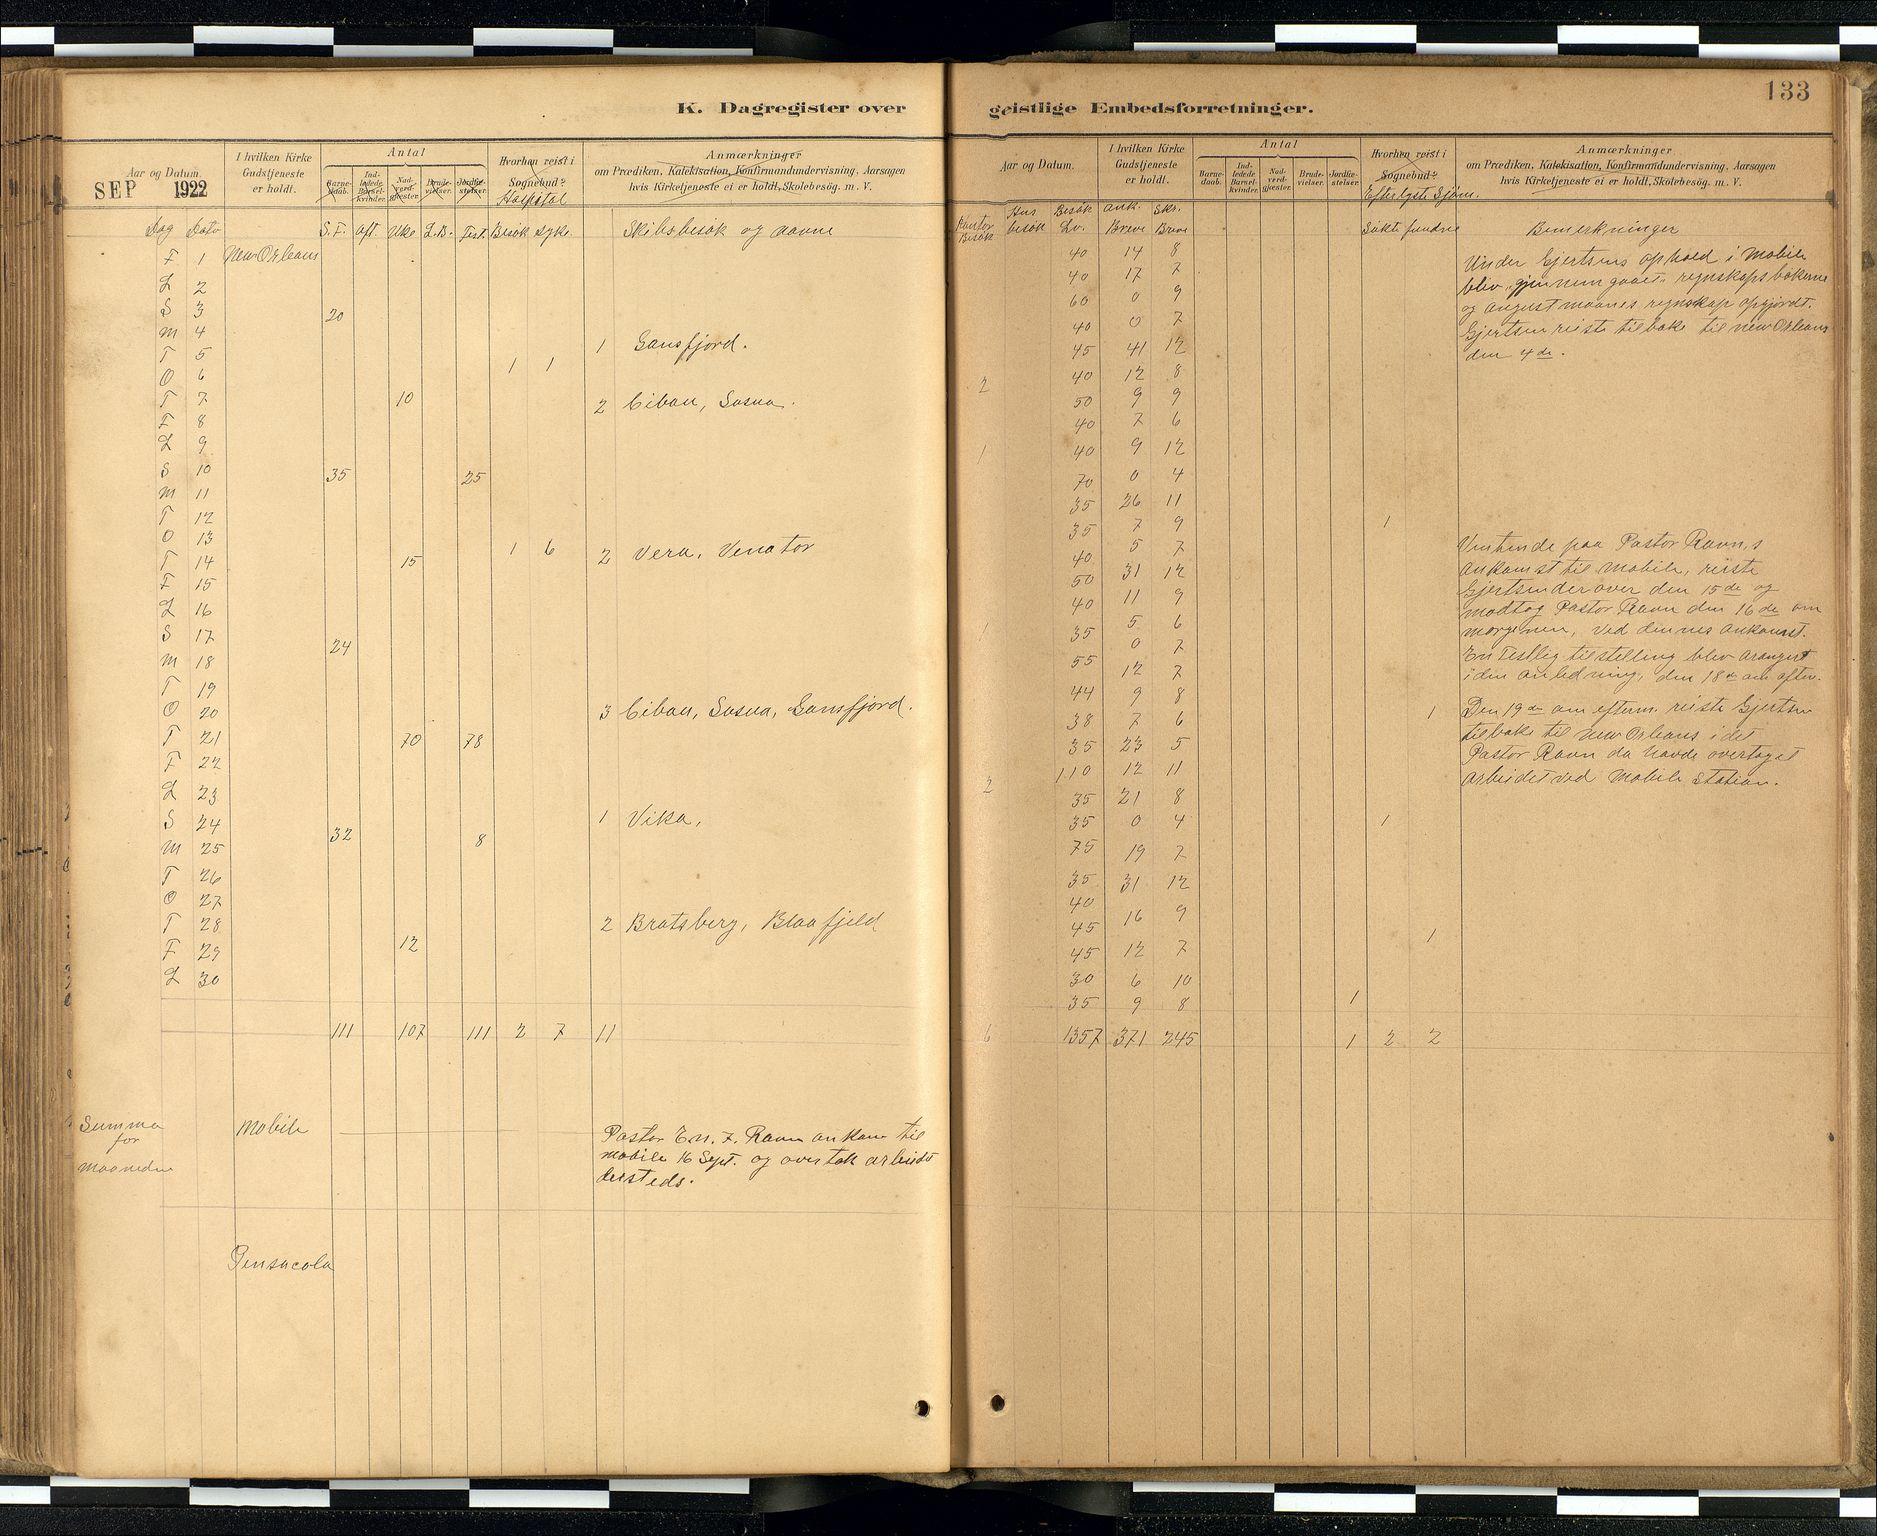 K. Dagregister over
Aar og Datum.
SEP 1922
I hvilken Kirke
Gudstjeneste
er holdt.
Antal
Barne-
daab.
Ind-
ledede
Barsel-
kvinder.
Nad-
verd-
gjester
Brude-
vielser.
Jordfæ-
stelser.
Hvorhen reist i
Sognebud?
Hospital
Anmærkninger
om Prædiken, Katekisation, Konfirmandundervisning, Aarsagen
hvis Kirketjeneste ei er holdt, Skolebesög. m. V.
Dag Dato S. F. Aft. Uke L.B. Fest. Besøk syke Skibsbesøk og navne
F 1 New Orleans
L 2
S 3 20
M 4 1 Gansfjord.
T 5 1 1
O 6
T 7 10 2 Cibau, Sosua.
F 8
L 9
S 10 35 25
M 11
T 12
O 13 1 6
T 14 15 2 Vera, Venator
F 15
L 16
S 17 24
M 18
T 19
O 20 3 Cibau, Sosua, Gansfjord.
T 21 70 78
F 22
L 23
S 24 32 8 1 Vika,
M 25
T 26
O 27
T 28 12 2 Bratsberg, Blaafjeld
F 29
L 30
111 107 111 2 7 11
Summa
for
maaneden
Mobile
Pastor En. F. Ravn ankom til
Mobile 16 Sept. og overtok arbeidet
dersteds.
Pensacola
133
geistlige Embedsforretninger.
Aar og Datum.
I hvilken Kirke
Gudstjeneste
er holdt.
Antal
Barne-
daab.
Ind-
ledede
Barsel-
kvinder.
Nad-
verd-
gjester.
Brude-
vielser.
Jordfæ-
stelser.
Hvorhen reist i
Sognebud?
Efterlyste Sjøm.
Anmærkninger
om Prædiken, Katekisation, Konfirmandundervisning, Aarsagen
hvis Kirketjeneste ei er holdt, Skolebesög. m. V.
Kontor Besøk Hus besøk Besøk Lv. Ank. Breve Skr. Breve Søkte fundne Bemerkninger
40 14 8
40 17 7
60 0 9
40 0 7
45 41 12
2 40 12 8
50 9 9
40 7 6
1 40 9 12
70 0 4
35 26 11
35 7 9 1
40 5 7
50 31 12
40 11 9
1 35 5 6
55 0 7
44 12 7
38 9 8
35 7 6 1
110 23 5
2 35 12 11
35 21 8
75 0 4 1
35 19 7
40 31 12
45 16 9
45 12 7 1
30 6 10
35 9 8 1
6 1357 371 245 1 2 2
Under Gjertsens ophold i Mobile
blev gjennemgaaet regnskapsbøkerne
og august maanes regnskap opgjordt.
Gjertsen reiste tilbake til New Orleans
den 4de.
Ventende paa Pastor Ravn,s
ankomst til Mobile, reiste
Gjertsen derover den 15de og
modtog Pastor Ravn den 16de om
morgenen, ved dennes ankomst.
En festlig tilstelling blev arangert
i den anledning, den 18de om aften.
Den 19de om efterm. reiste Gjertsen
tilbake til New Orleans i det
Pastor Ravn da havde overtaget
arbeidet ved Mobile station.